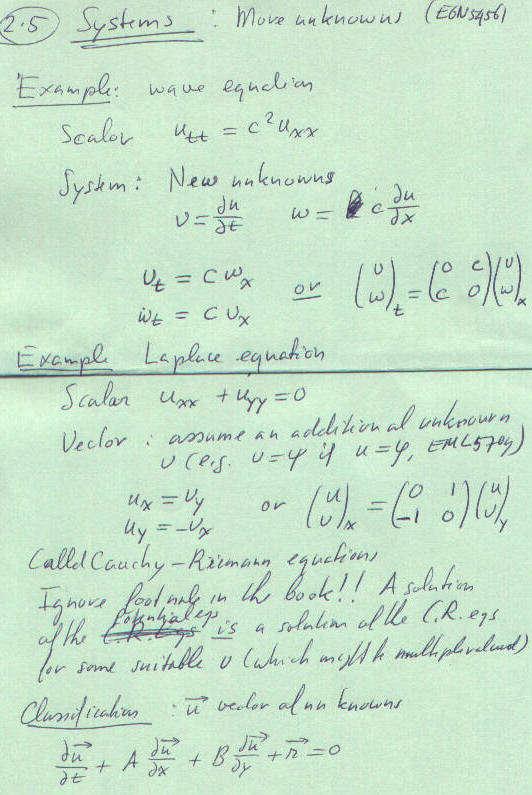 2.5 Systems : More unknowns (EGN5456)
Example: wave equation
Scalar u_tt = c² u_xx
System: New unknowns
v = ∂u/∂t w = c ∂u/∂x
v_t = c w_x
w_t = c v_x or (v w)_t = (0 c c 0)(v w)_x
Example Laplace equation
Scalar u_xx + u_yy = 0
Vector : assume an additional unknown
v (e.g. v = ψ if u = φ, EML5709)
u_x = v_y
u_y = -v_x or (u v)_x = (0 1 -1 0)(u v)_y
Called Cauchy-Riemann equations
Ignore footnote in the book!! A solution
of the Potential eqs is a solution of the C.R. eqs
for some suitable v (which might be multiplevalued)
Classification : u⃗ vector of unknowns
∂u⃗/∂t + A ∂u⃗/∂x + B ∂u⃗/∂y + r⃗ = 0